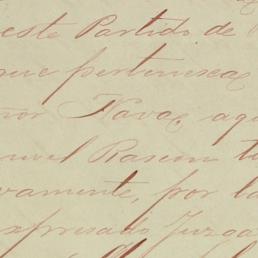 este Partido de
que pertenesca
ñor Navaz aqu
nuel Rascon t
vamente, por la
expresado Juzga